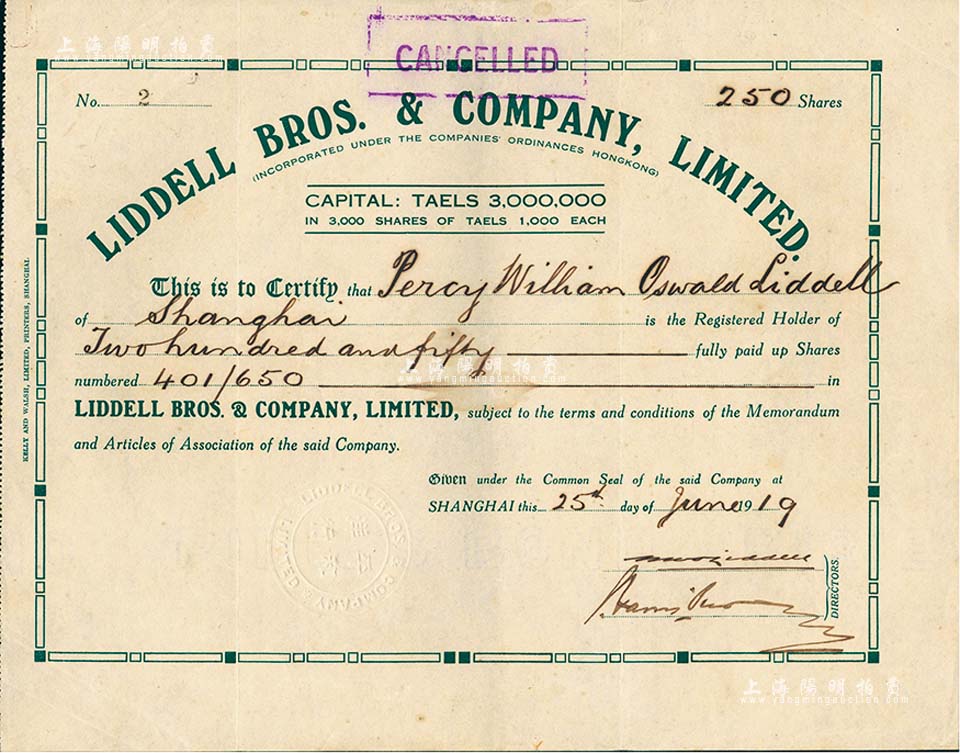 上海陽明拍賣
www.yangmingauction.com
CANCELLED
No. 2
250 Shares
LIDDELL BROS. & COMPANY, LIMITED.
(INCORPORATED UNDER THE COMPANIES' ORDINANCES HONGKONG)
CAPITAL: TAELS 3,000,000
IN 3,000 SHARES OF TAELS 1,000 EACH
This is to Certify that Percy William Oswald Liddell
of Shanghai is the Registered Holder of
Two hundred and fifty fully paid up Shares
numbered 401/650 in
LIDDELL BROS. & COMPANY, LIMITED, subject to the terms and conditions of the Memorandum
and Articles of Association of the said Company.
Given under the Common Seal of the said Company at
SHANGHAI this 25th day of June 1919
DIRECTORS.
KELLY AND WALSH, LIMITED, PRINTERS, SHANGHAI
LIDDELL BROS & COMPANY LIMITED
上海陽明拍賣
www.yangmingauction.com
上海陽明拍賣
www.yangmingauction.com